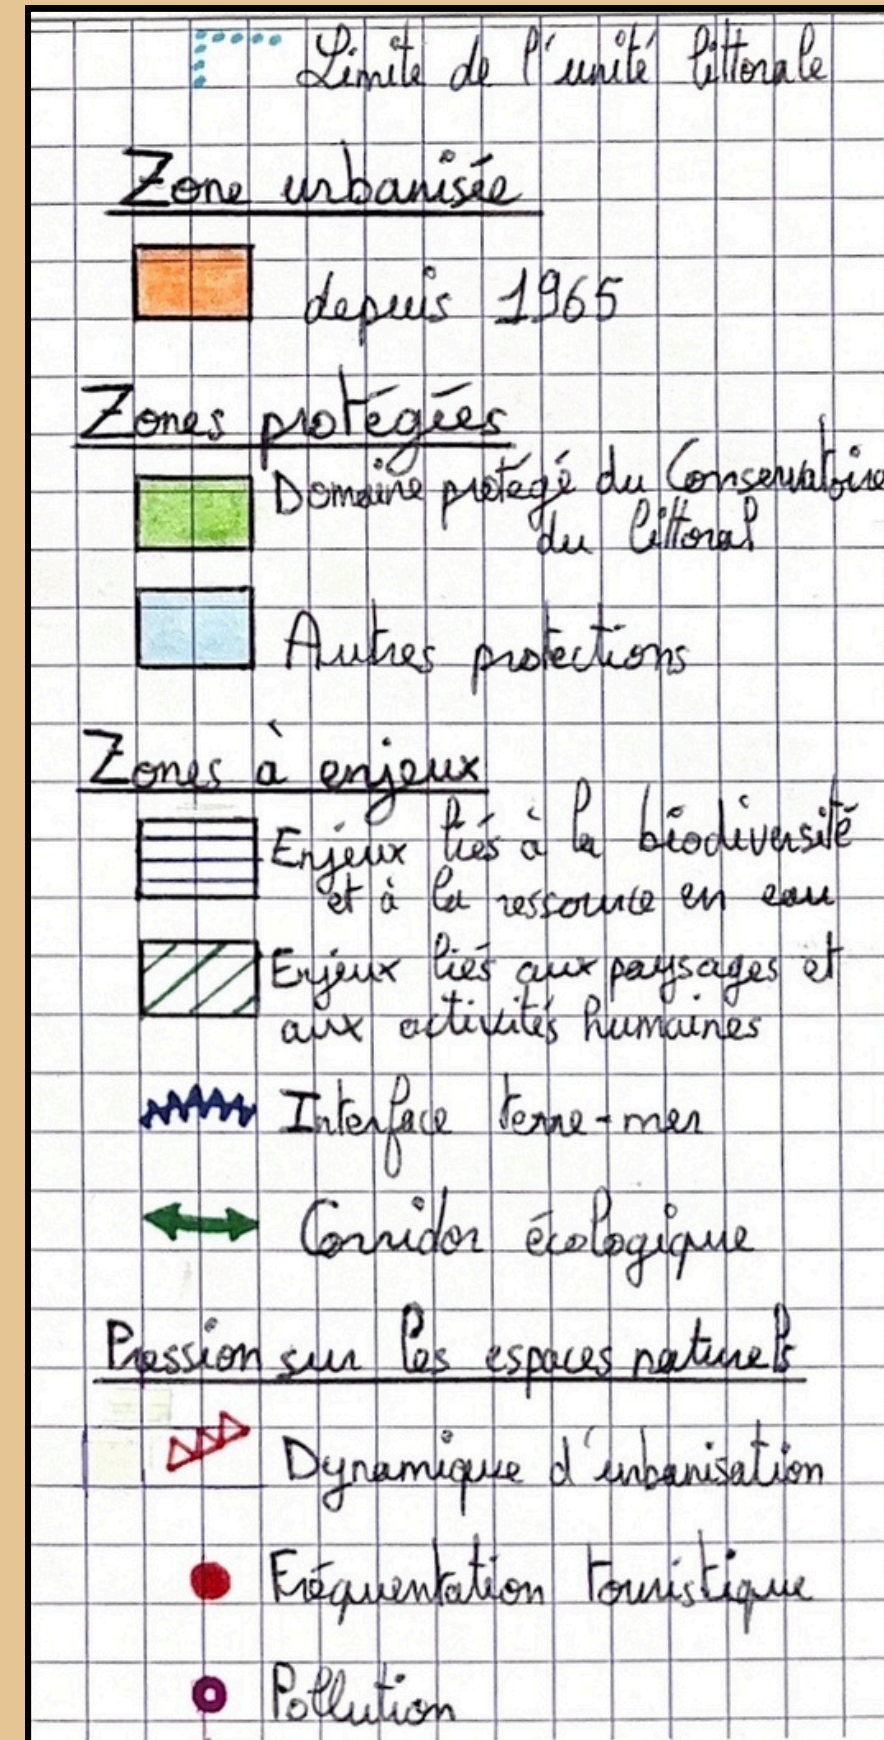 Limite de l'unité littorale
Zone urbanisée
depuis 1965
Zones protégées
Domaine protégé du Conservatoire
du littoral
Autres protections
Zones à enjeux
Enjeux liés à la biodiversité
et à la ressource en eau
Enjeux liés aux paysages et
aux activités humaines
Interface terre-mer
Corridor écologique
Pression sur les espaces naturels
Dynamique d'urbanisation
Fréquentation touristique
Pollution